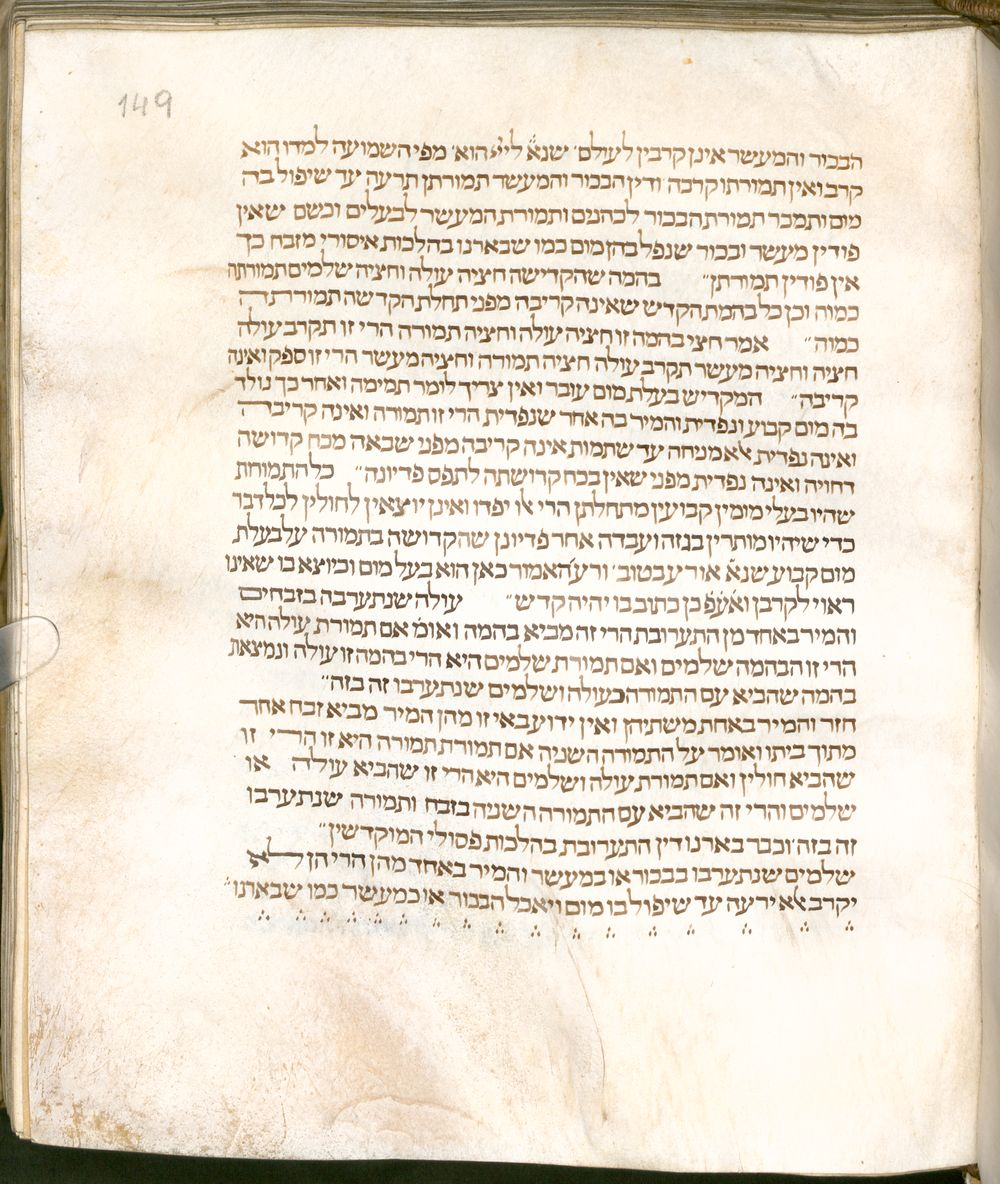 149
הבכור והמעשר אינן קרבין לעולם׳ שנא׳ ליי׳ הוא׳ מפי השמועה למדו הוא
קרב ואין תמורתו קרבה׳ ודין הבכור והמעשר תמורתן תרעה עד שיפול בה
מום ותמכר תמורת הבכור לכהנים ותמורת המעשר לבעלים וכשם שאין
פודין מעשר ובכור שנפל בהן מום כמו שבארנו בהלכות איסורי מזבח כך
אין פודין תמורתן״ בהמה שהקדישה חציה עולה וחציה שלמים תמורתה
כמוה וכן כל בהמת הקדיש שאינה קריבה מפני תחלת הקדשה תמורתה
כמוה״ אמר חצי בהמה זו חציה עולה וחציה תמורה הרי זו תקרב עולה
חציה וחציה מעשר תקרב עולה חציה תמורה וחציה מעשר הרי זו ספק ואינה
קריבה״ המקדיש בעלת מום עובר ואין צריך לומר תמימה ואחר כך נולד
בה מום קבוע ונפדית והמיר בה אחר שנפדית הרי זו תמורה ואינה קריבה
ואינה נפדית אלא מניחה עד שתמות אינה קריבה מפני שבאה מכח קדושה
דחויה ואינה נפדית מפני שאין בכח קדושתה לתפס פדיונה״ כל התמורות
שהיו בעלי מומין קבועין מתחלתן הרי אלו יפדו ואינן יוצאין לחולין לכל דבר
כדי שיהיו מותרין בגזה ועבדה אחר פדיונן שהקדושה בתמורה על בעלת
מום קבוע שנא׳ או רע בטוב׳ ורע האמור כאן הוא בעל מום וכיוצא בו שאינו
ראוי לקרבן ואעפ כן כתוב בו יהיה קדש״ עולה שנתערבה בזבחים
והמיר באחד מן התערובת הרי זה מביא בהמה ואומ׳ אם תמורת עולה היא
הרי זו הבהמה שלמים ואם תמורת שלמים היא הרי בהמה זו עולה ונמצאת
בהמה שהביא עם התמורה כעולה ושלמים שנתערבו זה בזה״
חזר והמיר באחת משתיהן ואין ידוע באי זו מהן המיר מביא זבח אחד
מתוך ביתו ואומר על התמורה השניה אם תמורת תמורה היא זו הרי זו
שהביא חולין ואם תמורת עולה ושלמים היא הרי זו שהביא עולה או
שלמים והרי זה שהביא עם התמורה השניה כזבח ותמורה שנתערבו
זה בזה׳ וכבר בארנו דין התערובת בהלכות פסולי המוקדשין״
שלמים שנתערבו בבכור או במעשר והמיר באחד מהן הרי הן לא
יקרב אלא ירעה עד שיפול בו מום ויאכל הבכור או כמעשר כמו שבארנו״